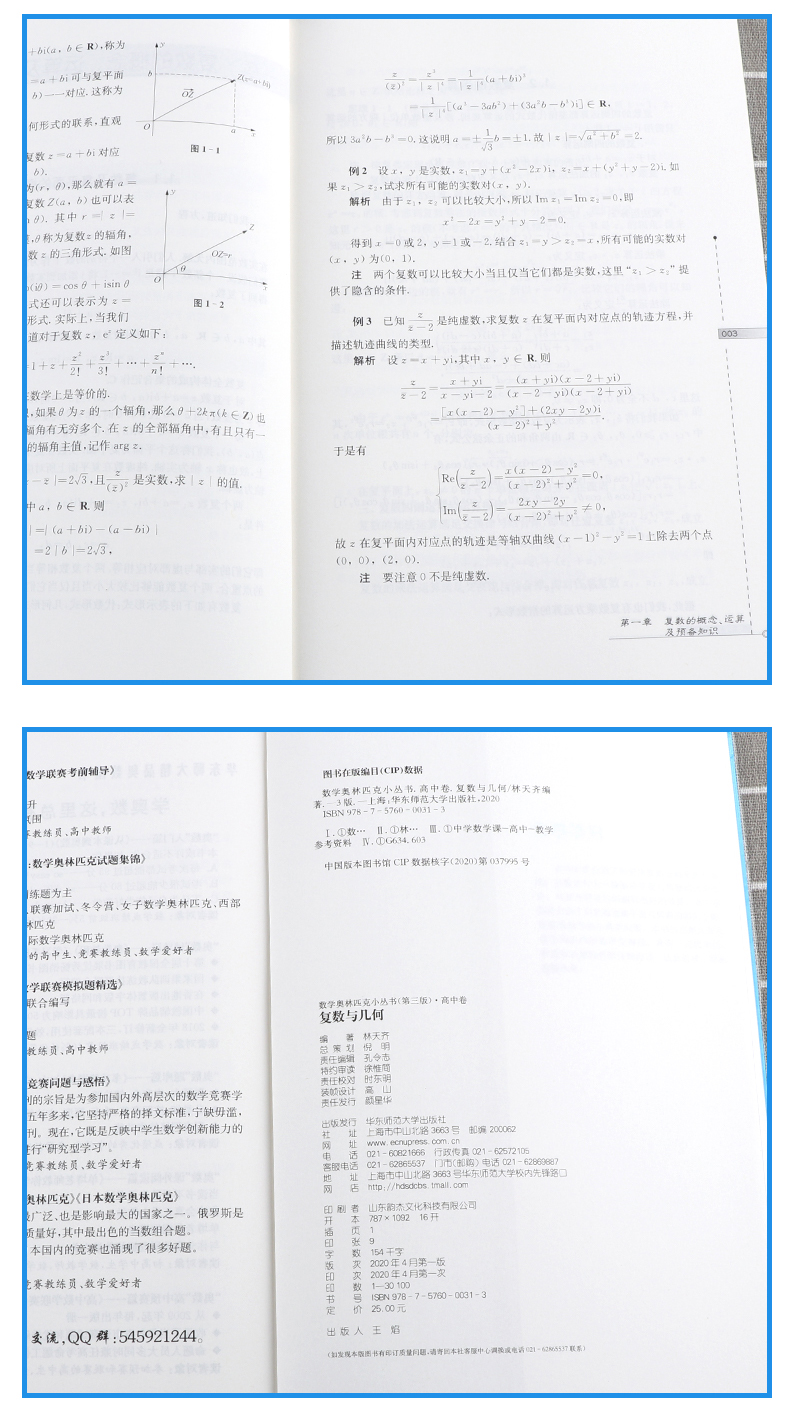 +bi(a, b∈R),称为
=a+bi 可与复平面
b)一一对应.这称为
何形式的联系,直观
复数 z=a+bi 对应
b).
为(r, θ),那么就有 a=
复数 Z(a, b)也可表
θ). 其中 r=|z|=
,θ称为复数z的辐角,
数 z 的三角形式. 如图
(iθ)=cos θ+isin θ
式还可以表示为 z=
形式. 实际上,当我们
道对于复数 z, e^z 定义如下:
1+z+z²/2!+z³/3!+…+zⁿ/n!+….
数学上是等价的.
,如果θ为z的一个辐角,那么θ+2kπ(k∈Z)也
辐角有无穷多个. 在 z 的全部辐角中,有且只有一
的辐角主值,记作 arg z.
-z̄|=2√3,且z/(z̄)²是实数,求|z|的值.
中 a, b∈R. 则
|=|(a+bi)-(a-bi)|
=2|b|=2√3,
y
b
Z(z=a+bi)
OZ
O
a
x
图 1-1
y
Z
OZ=r
θ
O
x
图 1-2
z/(z̄)²=z³/|z|⁴=1/|z|⁴(a+bi)³
=1/|z|⁴[(a³-3ab²)+(3a²b-b³)i]∈R,
所以 3a²b-b³=0. 这说明 a=±1/√3 b=±1. 故|z|=√(a²+b²)=2.
例 2 设 x, y 是实数, z₁=y+(x²-2x)i, z₂=x+(y²+y-2)i. 如
果 z₁>z₂,试求所有可能的实数对(x, y).
解析 由于 z₁, z₂ 可以比较大小,所以 Im z₁=Im z₂=0,即
x²-2x=y²+y-2=0.
得到 x=0或2, y=1或-2. 结合 z₁=y>z₂=x,所有可能的实数对
(x, y)为(0, 1).
注 两个复数可以比较大小当且仅当它们都是实数,这里“z₁>z₂”提
供了隐含的条件.
例 3 已知 z/(z-2) 是纯虚数,求复数 z 在复平面内对应点的轨迹方程,并
描述轨迹曲线的类型.
解析 设 z=x+yi,其中 x, y∈R. 则
z/(z-2)=(x+yi)/(x-yi-2)=(x+yi)(x-2+yi)/(x-2-yi)(x-2+yi)
=[x(x-2)-y²]+(2xy-2y)i/(x-2)²+y².
于是有
Re(z/(z-2))=x(x-2)-y²/(x-2)²+y²=0,
Im(z/(z-2))=2xy-2y/(x-2)²+y²≠0,
故 z 在复平面内对应点的轨迹是等轴双曲线 (x-1)²-y²=1上除去两个点
(0, 0), (2, 0).
注 要注意 0 不是纯虚数.
003
第一章 复数的概念、运算
及预备知识
数学联赛考前辅导》
升
范围
赛教练员、高中教师
:数学奥林匹克试题集锦》
训练题为主
联赛加试、冬令营、女子数学奥林匹克、西部
林匹克
际数学奥林匹克
的高中生、竞赛教练员、数学爱好者
学联赛模拟题精选》
联合编写
题
教练员、高中教师
竞赛问题与感悟》
刊的宗旨是为参加国内外高层次的数学竞赛学
五年多来,它坚持严格的择文标准,宁缺毋滥,
刊。现在,它既是反映中学生数学创新能力的
进行“研究型学习”。
竞赛教练员、数学爱好者
奥林匹克》《日本数学奥林匹克》
广泛、也是影响最大的国家之一。俄罗斯是
质量好,其中最出色的当数组合题。
本国内的竞赛也涌现了很多好题。
竞赛教练员、数学爱好者
交流,QQ群:545921244。
图书在版编目(CIP)数据
数学奥林匹克小丛书. 高中卷. 复数与几何/林天齐编
著. —3版. —上海:华东师范大学出版社,2020
ISBN 978-7-5760-0031-3
Ⅰ.①数… Ⅱ.①林… Ⅲ.①中学数学课-高中-教学
参考资料 Ⅳ.①G634.603
中国版本图书馆 CIP 数据核字(2020)第 037995 号
数学奥林匹克小丛书(第三版)·高中卷
复数与几何
编 著 林天齐
总策划 倪 明
责任编辑 孔令志
特约审读 徐惟简
责任校对 时东明
装帧设计 高 山
责任发行 顾星华
出版发行 华东师范大学出版社
社 址 上海市中山北路 3663 号 邮编 200062
网 址 www.ecnupress.com.cn
电 话 021-60821666 行政传真 021-62572105
客服电话 021-62865537 门市(邮购)电话 021-62869887
地 址 上海市中山北路 3663 号华东师范大学校内先锋路口
网 店 http://hdsdcbs.tmall.com
印刷者 山东韵杰文化科技有限公司
开 本 787×1092 16开
插 页 1
印 张 9
字 数 154千字
版 次 2020年4月第一版
印 次 2020年4月第一次
印 数 1—30 100
书 号 ISBN 978-7-5760-0031-3
定 价 25.00元
出版人 王 焰
(如发现本版图书有印订质量问题,请寄回本社客服中心调换或电话 021-62865537 联系)